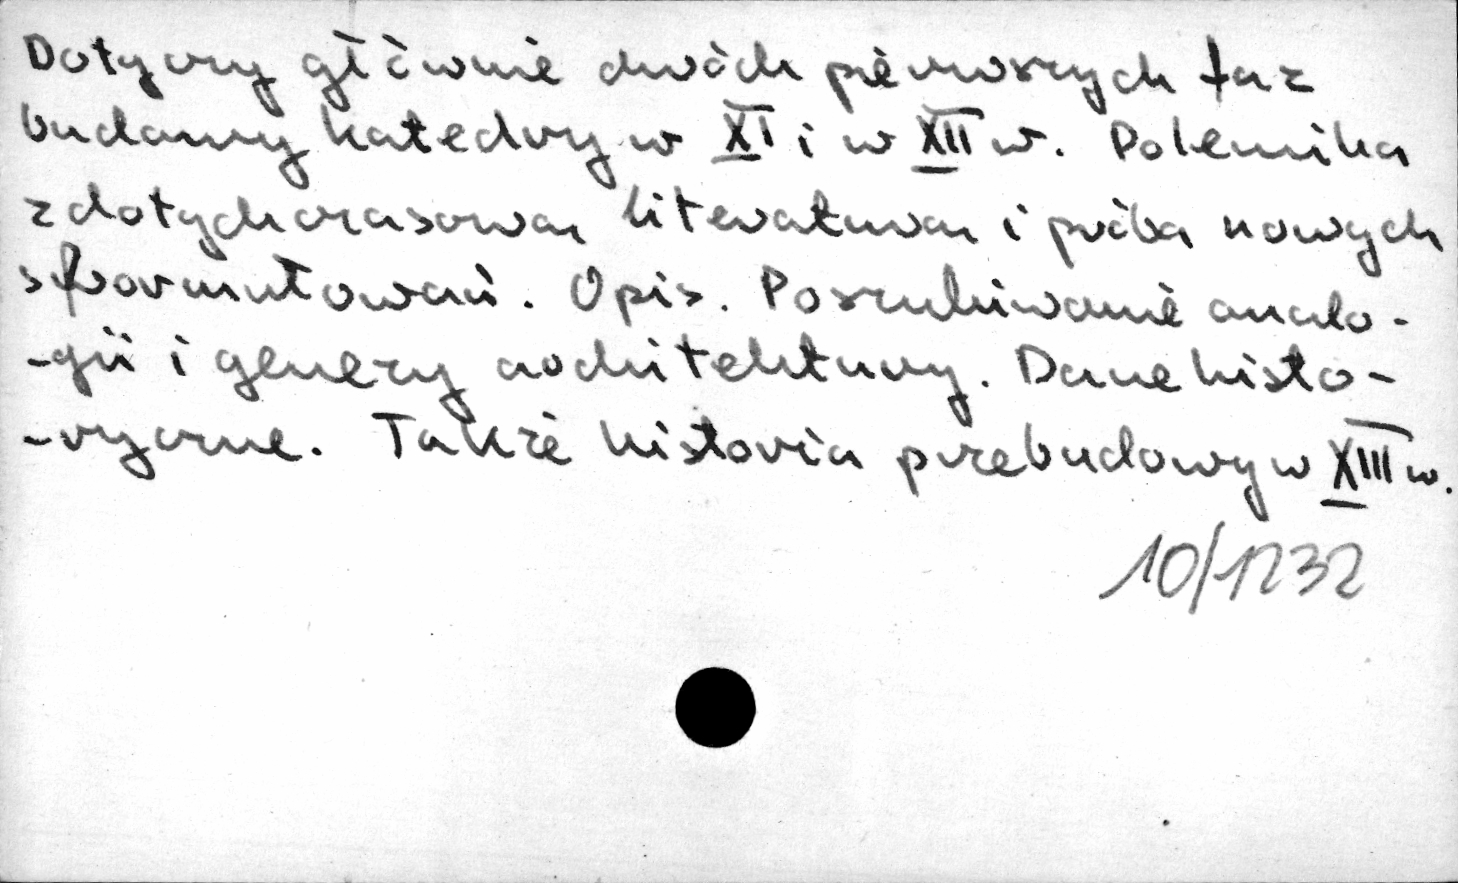 Dotyczy głównie dwóch pierwszych faz
budowy katedry w XI i w XII w. Polemika
z dotychczasową literaturą i próba nowych
sformułowań. Opis. Poszukiwanie analo-
-gii i genezy architektury. Dane histo-
-ryczne. Także historia przebudowy w XIII w.
10/1232